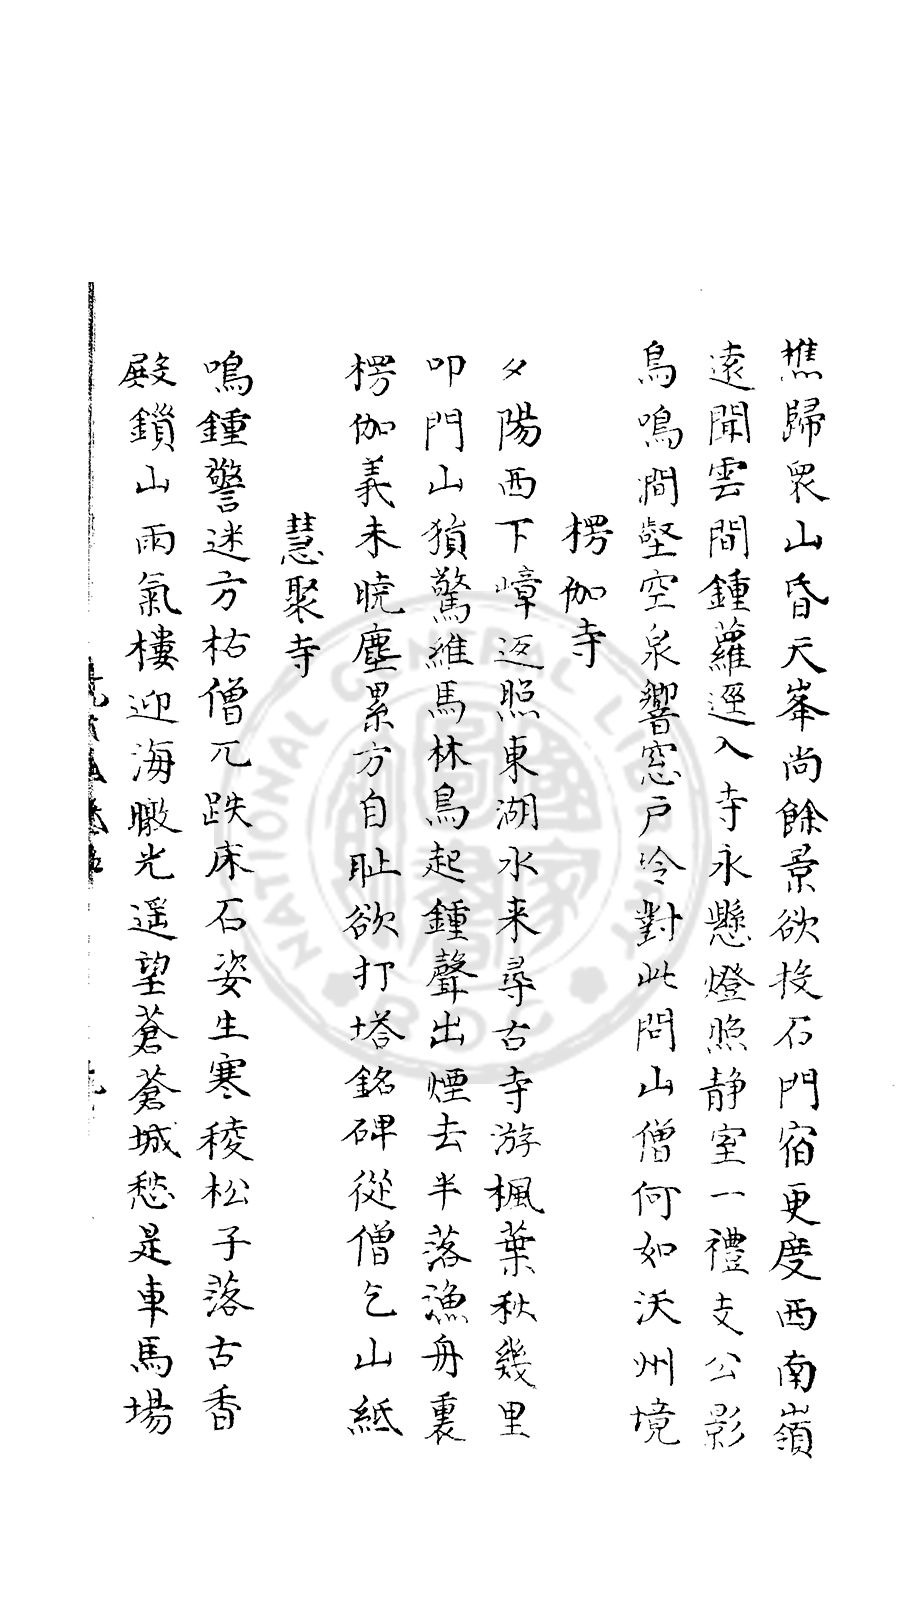 樵歸衆山昏天峯尚餘景欲投石門宿更度西南嶺
遠聞雲間鍾蘿逕入寺永懸燈照静室一禮支公影
鳥鳴澗壑空泉響窓户冷對此問山僧何如沃州境
楞伽寺
夕陽西下嶂返照東湖水来尋古寺游楓葉秋幾里
叩門山猿驚維馬林鳥起鍾聲出煙去半落漁舟裏
楞伽義未曉塵累方自耻欲打塔銘碑從僧乞山紙
慧聚寺
鳴鍾警迷方枯僧兀趺床石姿生寒稜松子落古香
殿鎖山雨氣樓迎海暾光遥望蒼蒼城愁是車馬場
NATIONAL CENTRAL LIBRARY
R.O.C.
國家圖書館